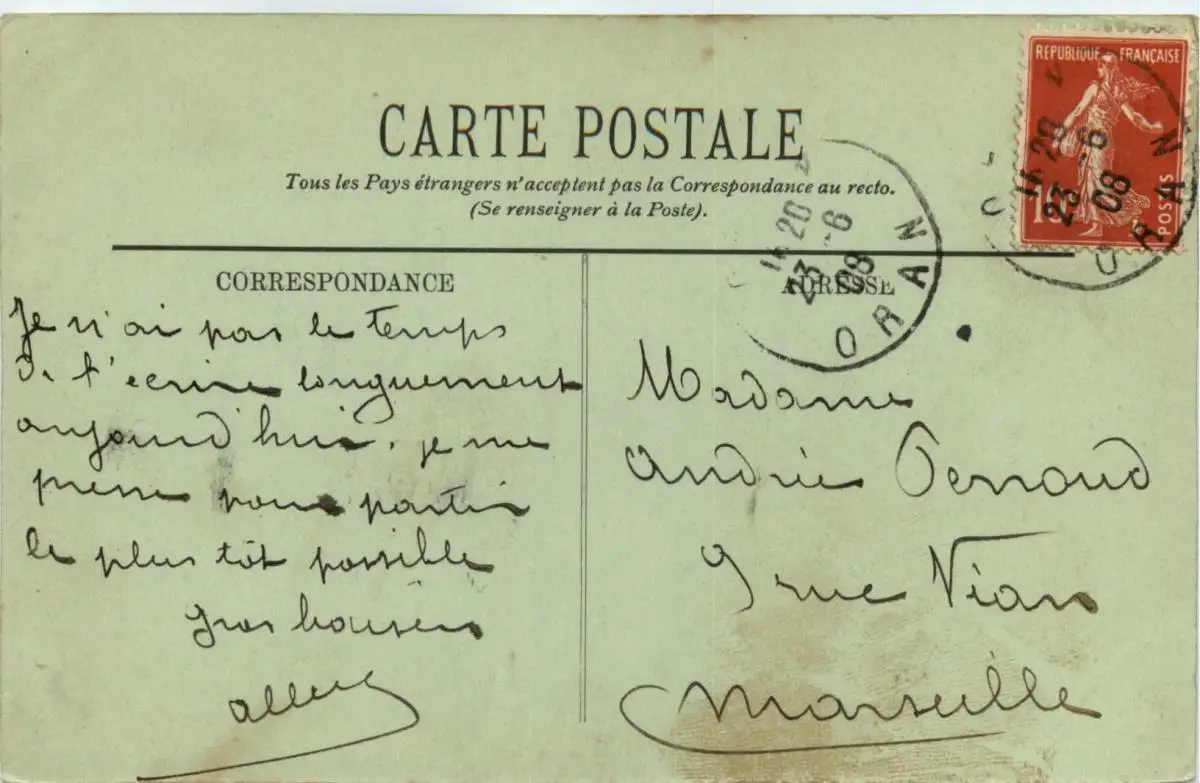 CARTE POSTALE
Tous les Pays étrangers n'acceptent pas la Correspondance au recto.
(Se renseigner à la Poste).
REPUBLIQUE FRANÇAISE
POSTES
10
11 20
23 -6
08
ORAN
11 20
23 -6
08
ORAN
CORRESPONDANCE
Je n'ai pas le temps
de t'écrire longuement
aujourd'hui. je me
presse pour partir
le plus tôt possible
Gros baisers
ADRESSE
Madame
André Pernoud
9 rue Vian
Marseille